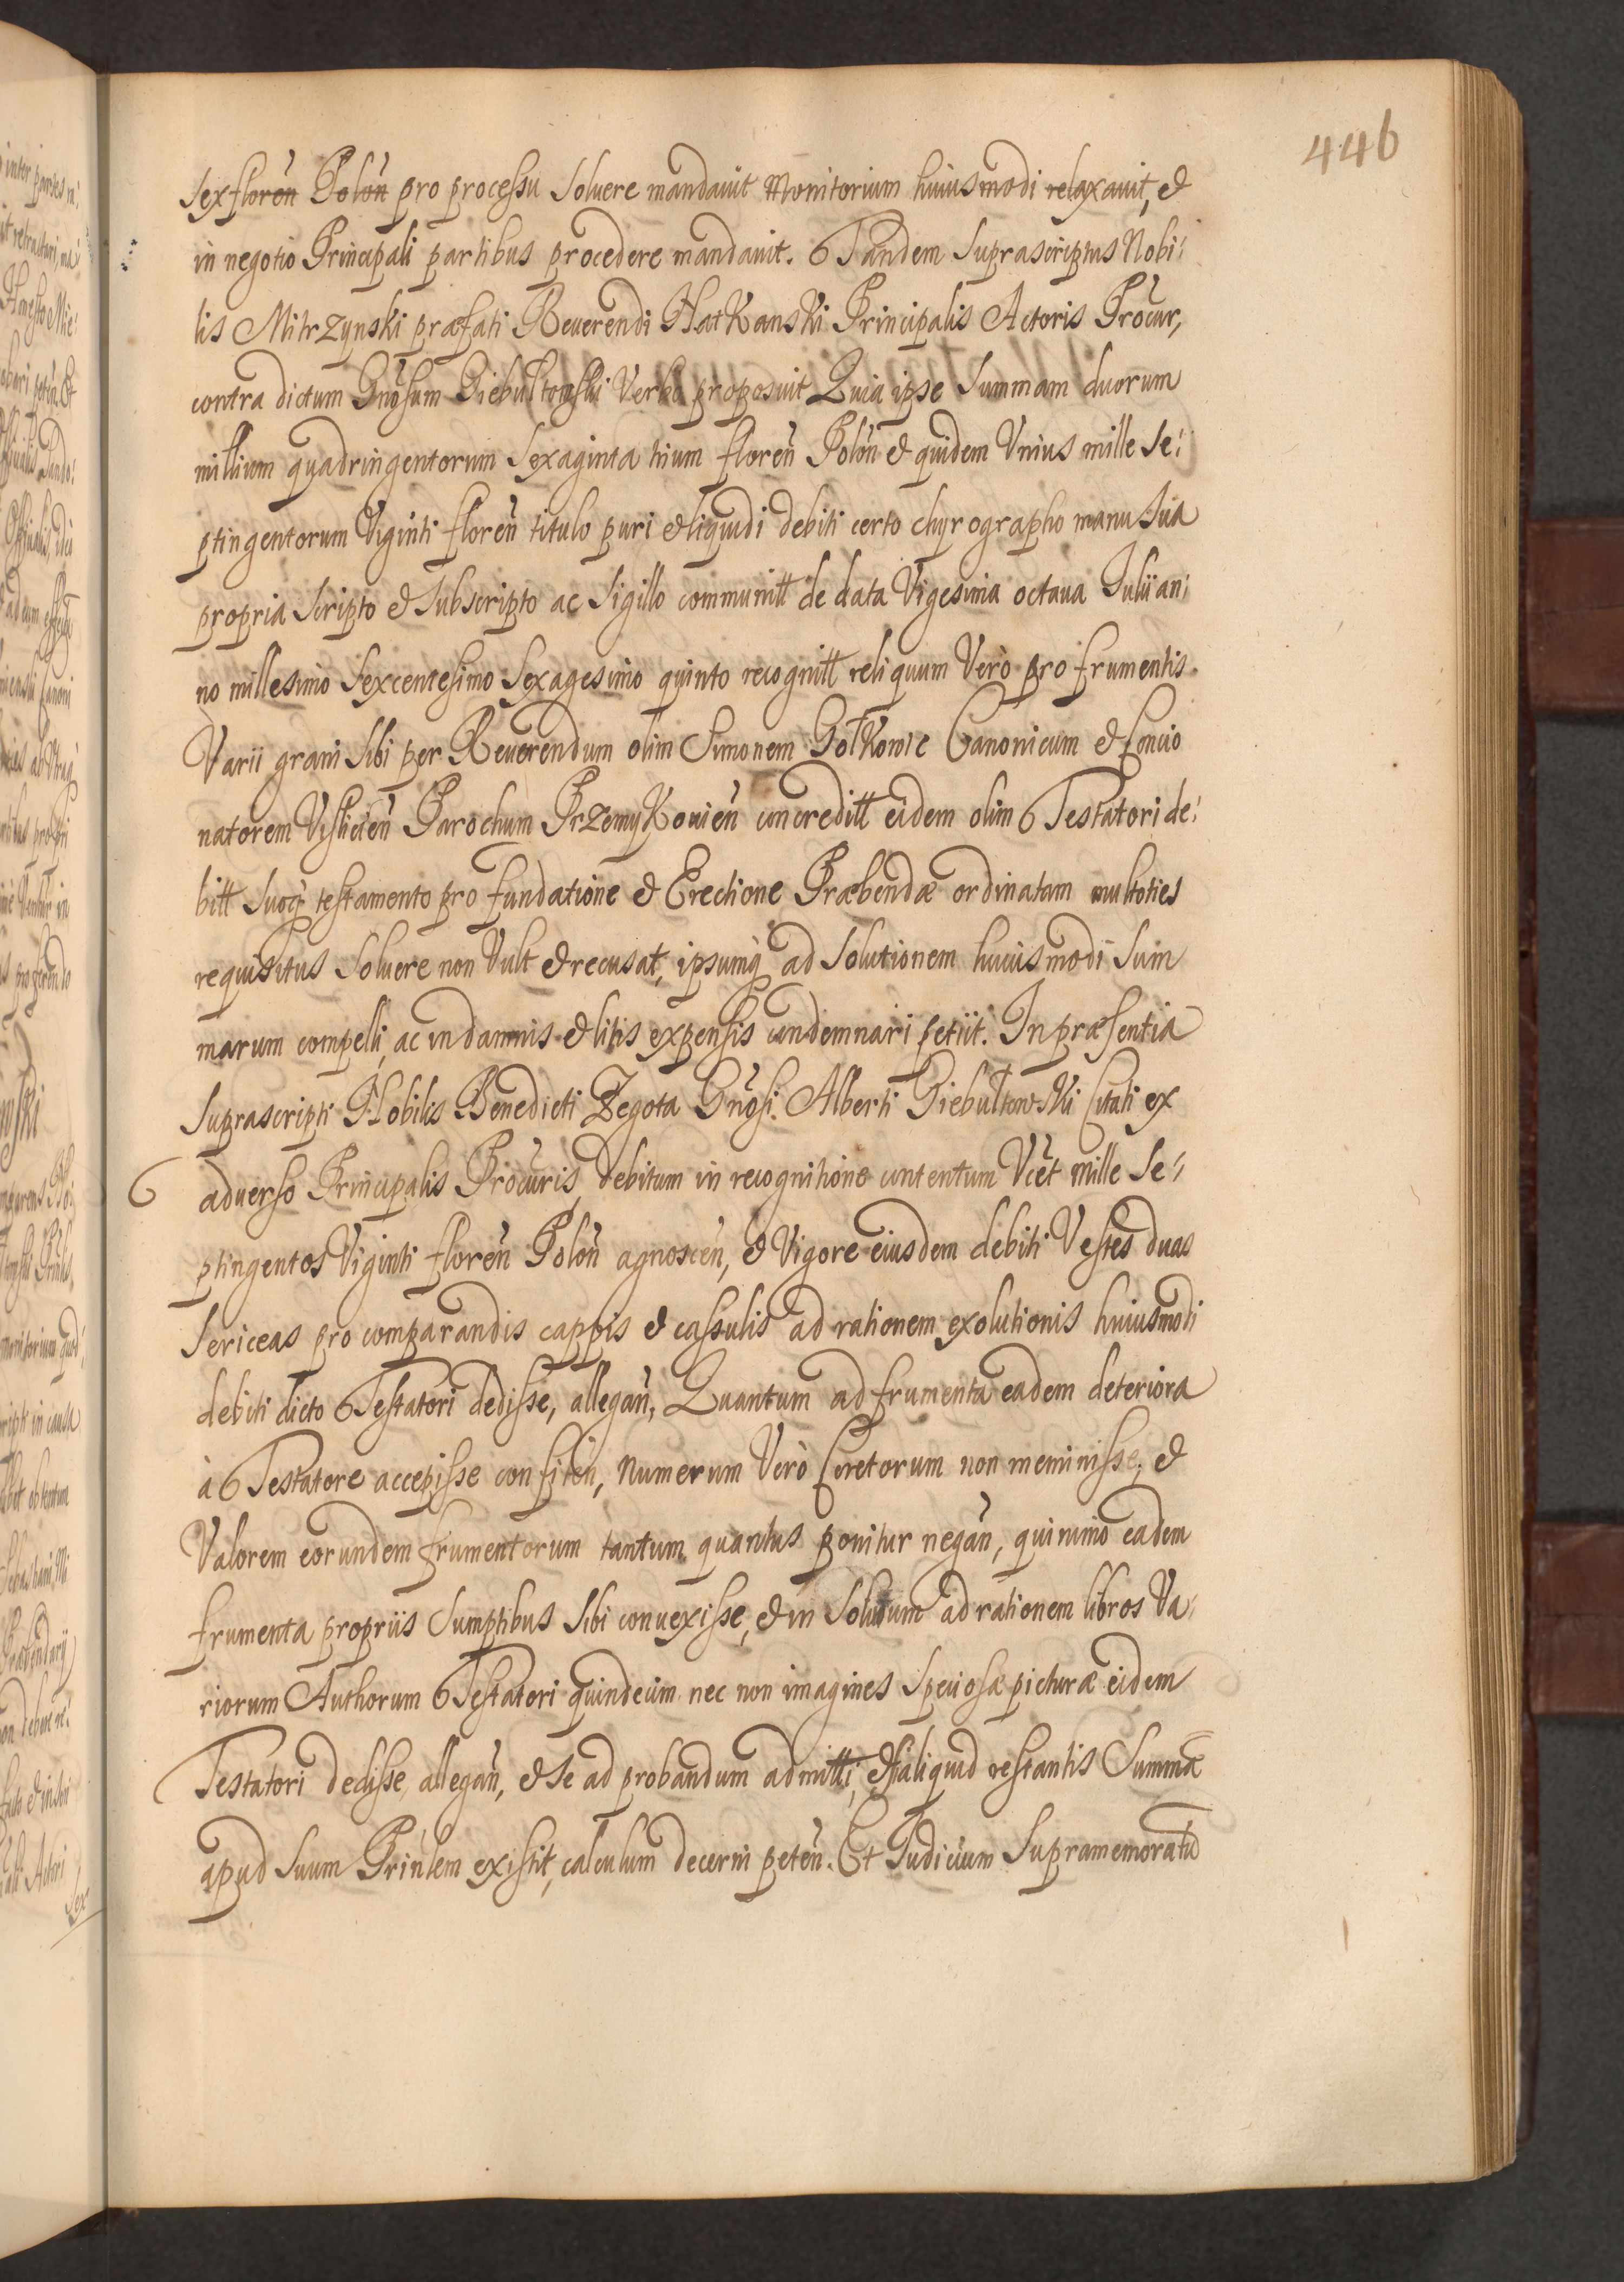 446
sex floren Polon pro processu soluere mandauit Monitorium huiusmodi relaxauit, et
in negotio Principali partibus procedere mandauit. Tandem suprascriptus Nobi:
lis Mitrzynski præfati Reuerendi HatKansKi Principalis Actoris Procur,
contra dictum Gnosum Giebultowski Verbo proposuit Quia ipse summam duorum
millium quadringentorum sexaginta trium floren Polon et quidem Vnius mille se:
ptingentorum Viginti floren titulo puri et liquidi debiti certo chyrographo manu sua
propria scripto et subscripto ac sigillo communitt de data Vigesima octaua Julii an:
no millesimo sexcentesimo sexagesimo quinto recognitt reliquum Verò pro frumentis
Varii grani sibi per Reuerendum olim Simonem GołKowic Canonicum et Concio
natorem Vislicien Parochum PrzemyKouien concreditt eidem olim Testatori de:
bitt suoq testamento pro fundatione et Erectione Præbendæ ordinatam multoties
requisitus soluere non Vult et recusat, ipsumq ad solutionem huiusmodi sum
marum compelli, ac in damnis et litis expensis condemnari petiit. In præsentia
suprascripti Nobilis Benedicti Zegota Gnosi. Alberti GiebultowsKi Citati ex
aduerso Principalis Procuris, debitum in recognitione contentum Vcet mille se:
ptingentos Viginti floren Polon agnoscen, et Vigore eiusdem debiti Vestes duas
sericeas pro comparandis cappis et cassulis ad rationem exolutionis huiusmodi
debiti dicto Testatori dedisse, allegan, Quantum ad frumenta eadem deteriora
à Testatore accepisse confiten, Numerum Verò Coretorum non meminisse, et
Valorem eorundem frumentorum tantum quantus ponitur negan, quinimo eadem
frumenta propriis sumptibus sibi conuexisse, et in solutum ad rationem libros Va:
riorum Authorum Testatori quindecim nec non imagines speciosæ picturæ eidem
Testatori dedisse, allegan, et se ad probandum admitti, et si aliquid restantis summæ
apud suum Prinlem existit, calculum decerni peten. Et Judicium supramemoratu